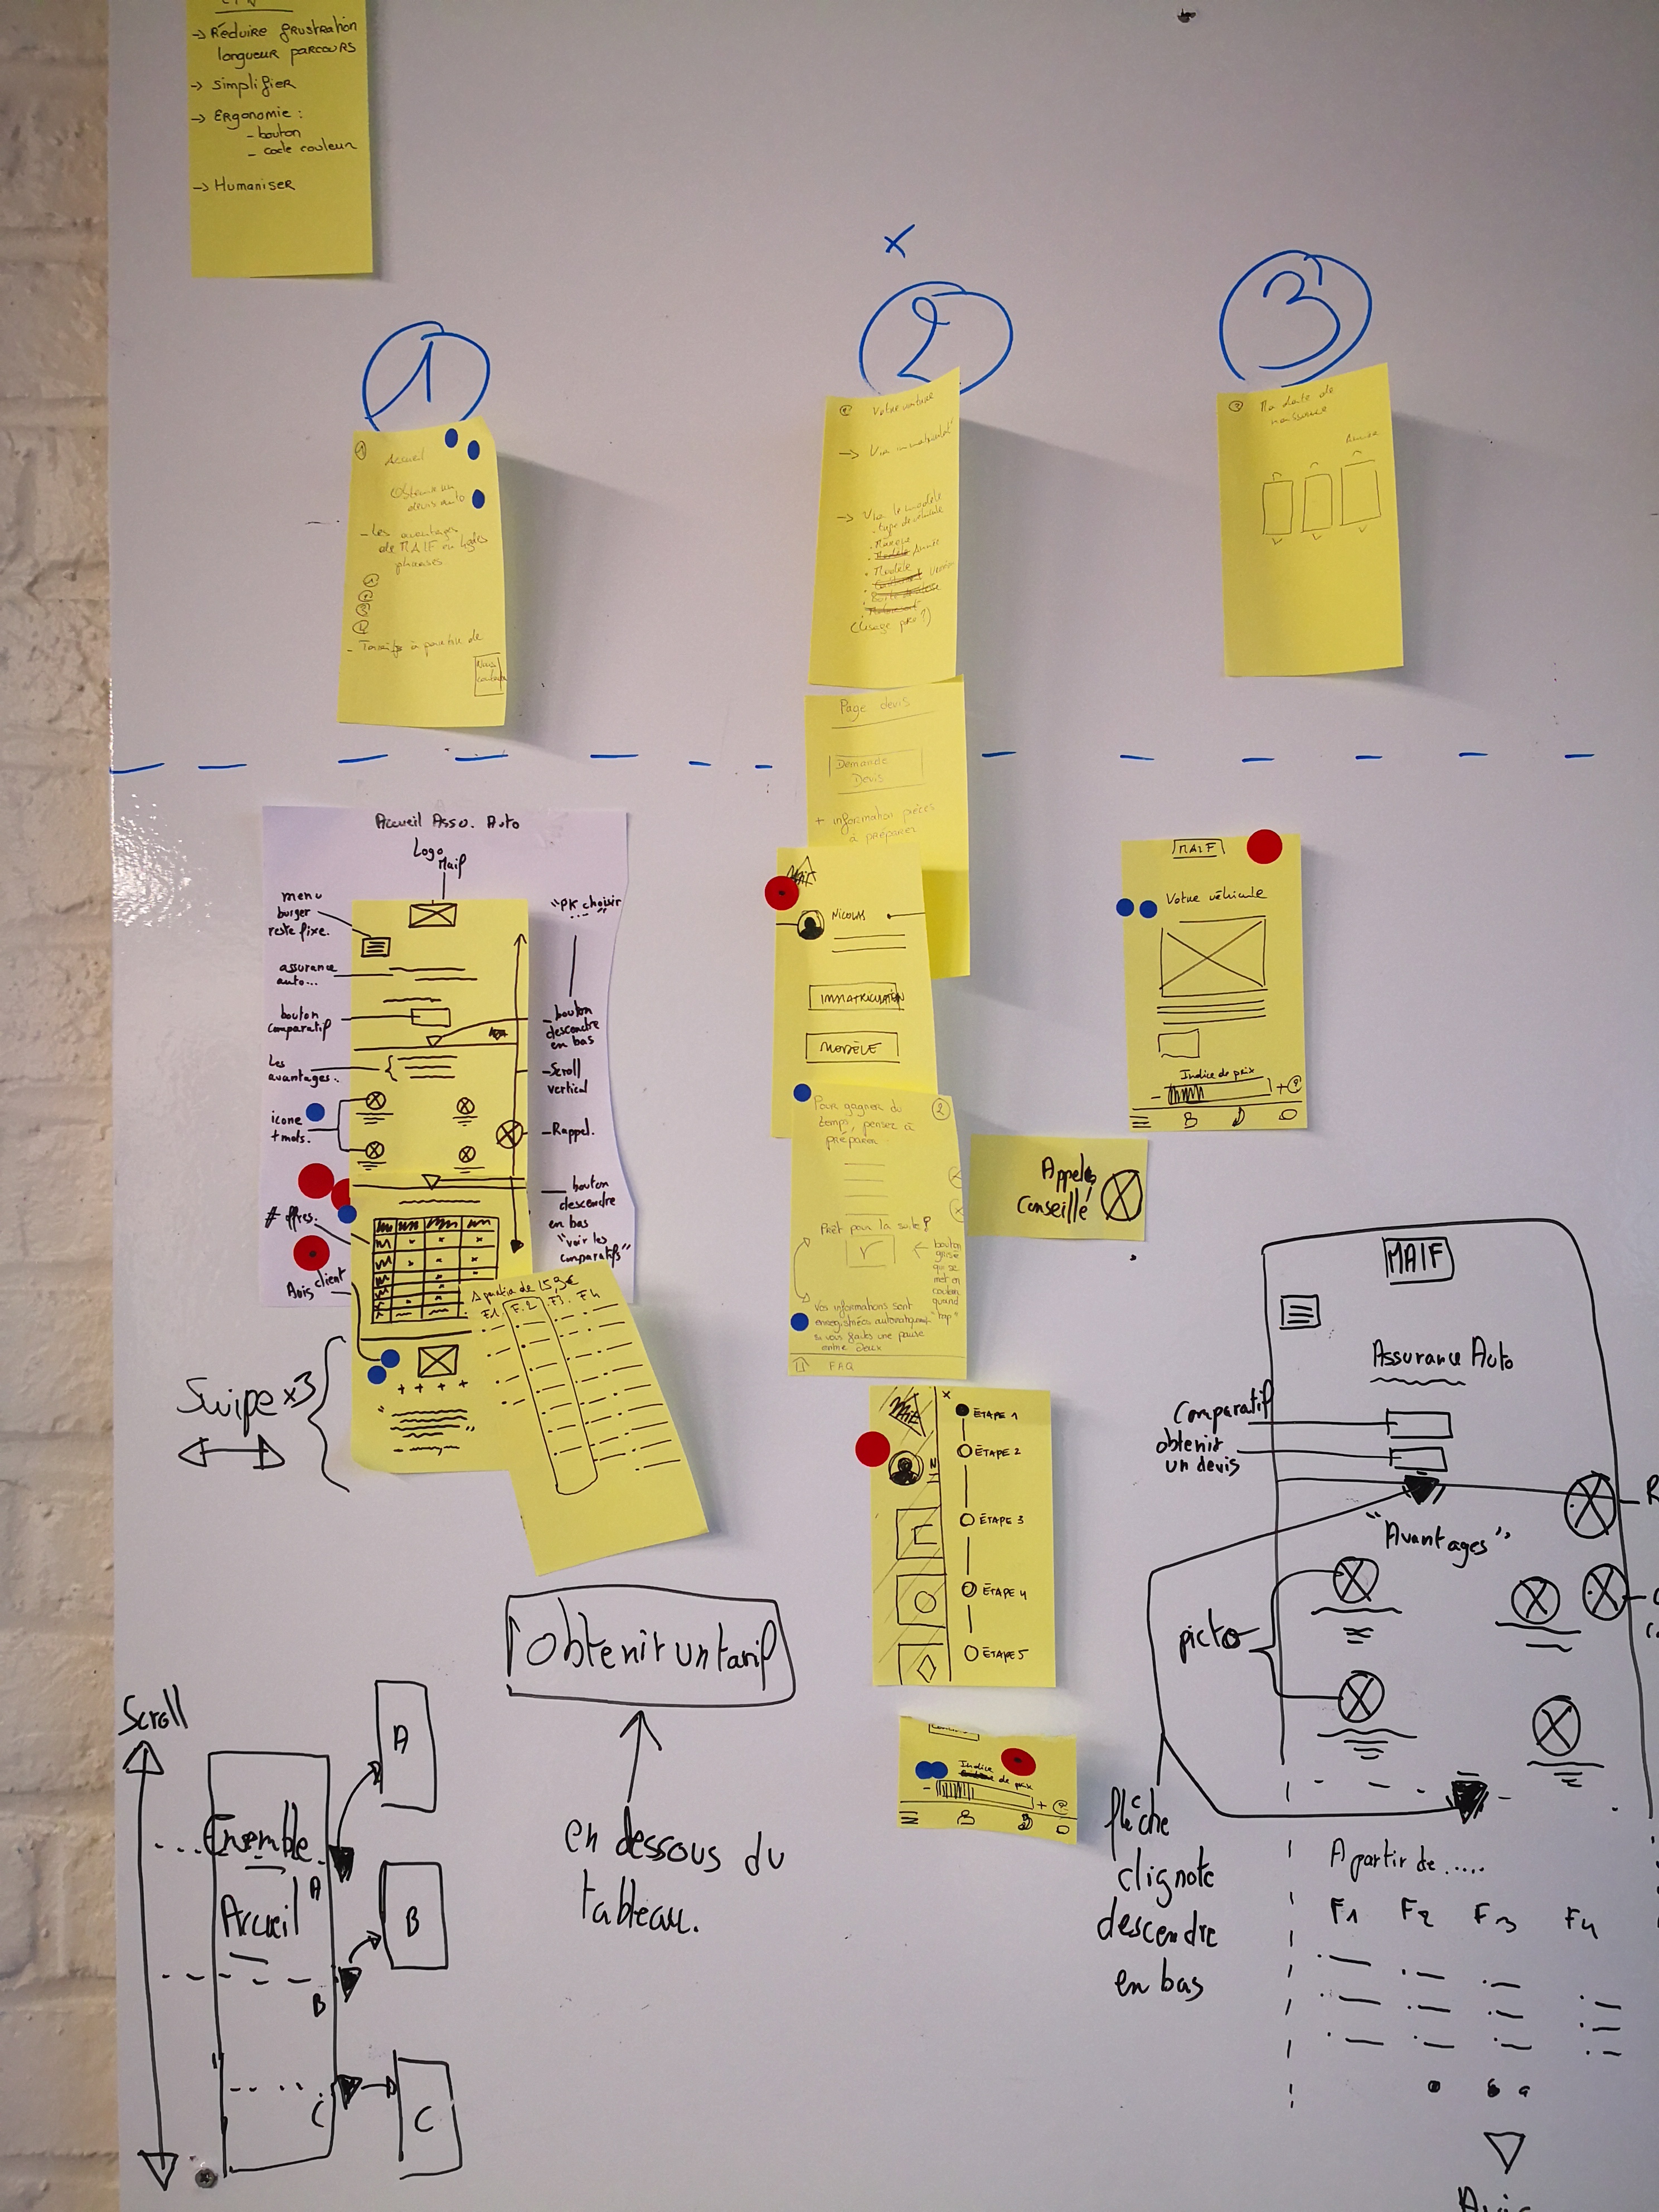 → Réduire frustration
longueur parcours
→ simplifier
→ Ergonomie :
- bouton
- code couleur
→ Humaniser
1
x
2
3
1
Accueil
devis auto
- Les avantages
de MAIF en
phrases
- Tarifs à partir de
Nous
2 Votre voiture
→ Via immatriculat°
→ Via le modèle
type de véhicule
. Marque
Modèle Année
. Modèle
(Usage pro ?)
3 Ma date de
naissance
Année
Page devis
Demande
Devis
+ information pièces
à préparer
Accueil Assu. Auto
Logo
Maif
menu
burger
reste fixe.
"PK choisir
..."
assurance
auto...
bouton
comparatif
bouton
descendre
en bas
Les
avantages..
Scroll
vertical
icone
+ mots.
Rappel.
bouton
descendre
en bas
"voir les
comparatifs"
# offres.
Avis client
A partir de 15,3€
F1 F.2 F3. F4
Swipe x3
MAIF
NICOLAS
IMMATRICULATION
MODÈLE
Pour gagner du
temps, penser à
préparer
2
Prêt pour la suite ?
bouton
grisé
qui se
met en
couleur
quand
"top"
Vos informations sont
enregistrées automatiquement
si vous faites une pause
entre deux
FAQ
Appeler
Conseillé
MAIF
Votre véhicule
Indice de prix
- +
MAIF
x
ÉTAPE 1
ÉTAPE 2
ÉTAPE 3
ÉTAPE 4
ÉTAPE 5
Indice
de prix
- +
obtenir un tarif
en dessous du
tableau.
Scroll
Ensemble
Accueil
A
A
B
B
C
C
MAIF
Assurance Auto
Comparatif
obtenir
un devis
R
"Avantages"
picto
flèche
clignote
descendre
en bas
A partir de .....
F1 F2 F3 F4
Avis